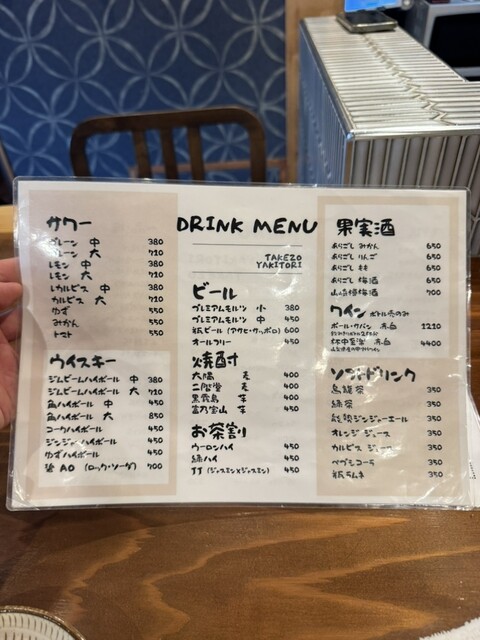 DRINK MENU
TAKEZO
YAKITORI
サワー
プレーン 中 380
プレーン 大 710
レモン 中 380
レモン 大 710
カルピス 中 380
カルピス 大 710
ゆず 550
みかん 550
トマト 550
ウイスキー
ジムビームハイボール 中 380
ジムビームハイボール 大 710
角ハイボール 中 450
角ハイボール 大 850
コークハイボール 450
ジンジャーハイボール 450
ゆずハイボール 450
碧 AO (ロック・ソーダ) 700
ビール
プレミアムモルツ 小 380
プレミアムモルツ 中 450
瓶ビール (アサヒ・サッポロ) 600
オールフリー 450
焼酎
八幡 麦 400
二階堂 麦 400
黒霧島 芋 400
富乃宝山 芋 450
お茶割り
ウーロンハイ 450
緑ハイ 450
JJ (ジャスミン×ジャスミン) 450
果実酒
あらごし みかん 650
あらごし りんご 650
あらごし もも 650
あらごし 梅酒 650
山崎樽梅酒 700
ワイン ボトル売のみ
ポール・クバン 赤・白 1210
4400
ソフトドリンク
烏龍茶 350
緑茶 350
能勢ジンジャーエール 350
オレンジジュース 350
カルピスジュース 350
ペプシコーラ 350
瓶ラムネ 350